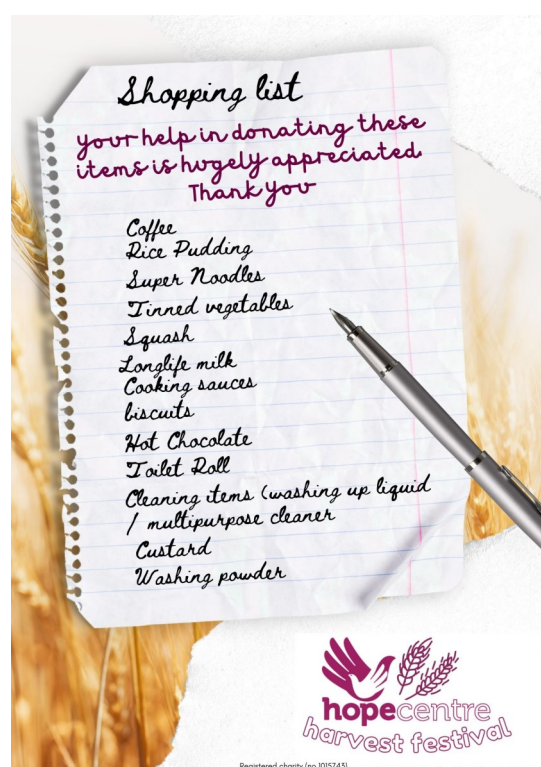 Shopping list
your help in donating these
items is hugely appreciated.
Thank you
Coffee
Rice Pudding
Super Noodles
Tinned vegetables
Squash
Longlife milk
Cooking sauces
biscuits
Hot Chocolate
Toilet Roll
Cleaning items (washing up liquid
/ multipurpose cleaner
Custard
Washing powder
hopecentre
harvest festival
Registered charity (no 1015743)